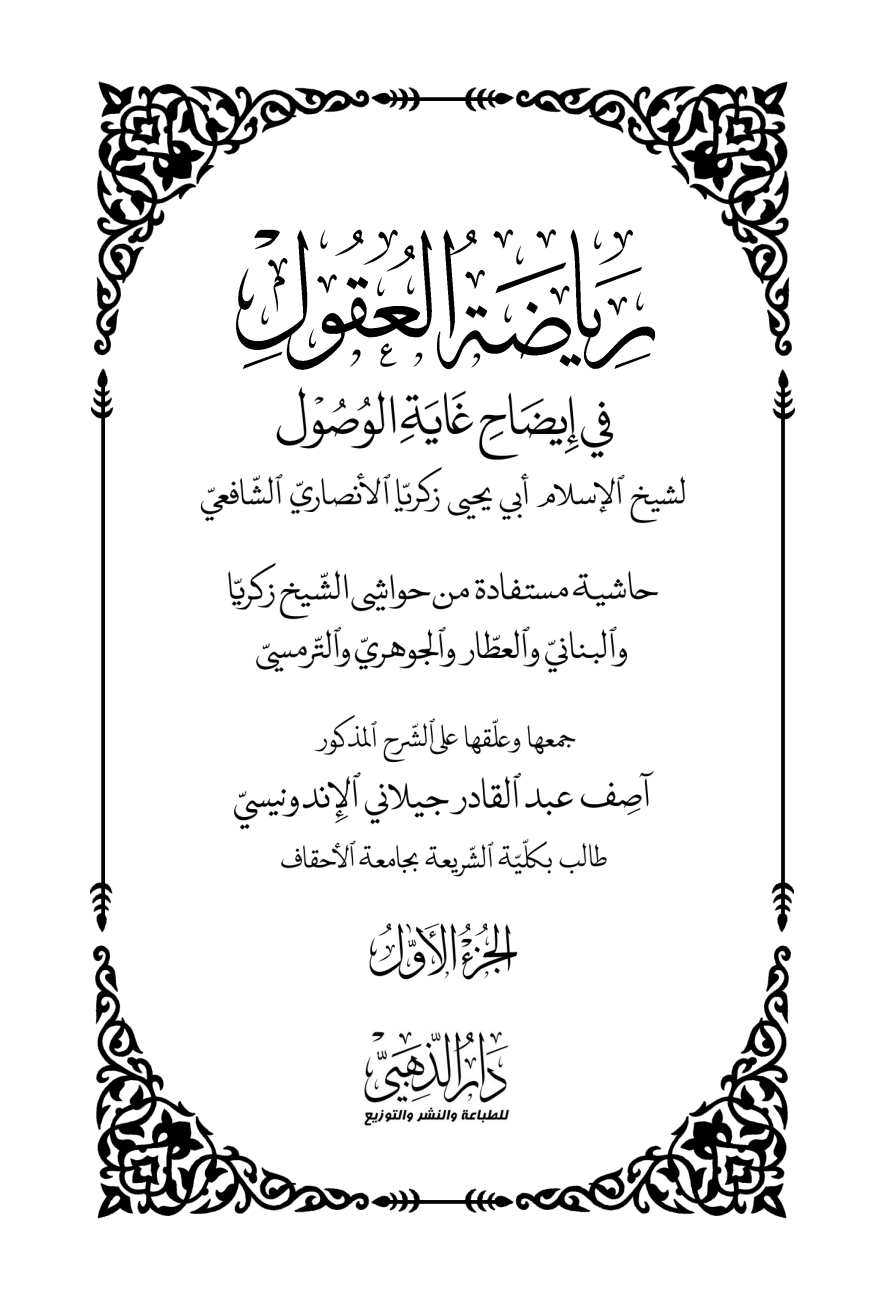 رِيَاضَةُ الْعُقُولِ
في إِيضَاحِ غَايَةِ الوُصُوْل
لشيخ ٱلإسلام أبي يحيى زكريّا ٱلأنصاريّ ٱلشّافعيّ
حاشية مستفادة من حواشي الشّيخ زكريّا
وٱلبنانيّ وٱلعطّار وٱلجوهريّ وٱلتّرمسيّ
جمعها وعلّقها على ٱلشّرح ٱلمذكور
آصِف عبد ٱلقادر جيلاني ٱلإِندونيسيّ
طالب بكلّيّة ٱلشّريعة بجامعة ٱلأحقاف
الجُزْءُ الأَوَّلُ
دَارُ الذَّهَبِيّ
للطباعة والنشر والتوزيع